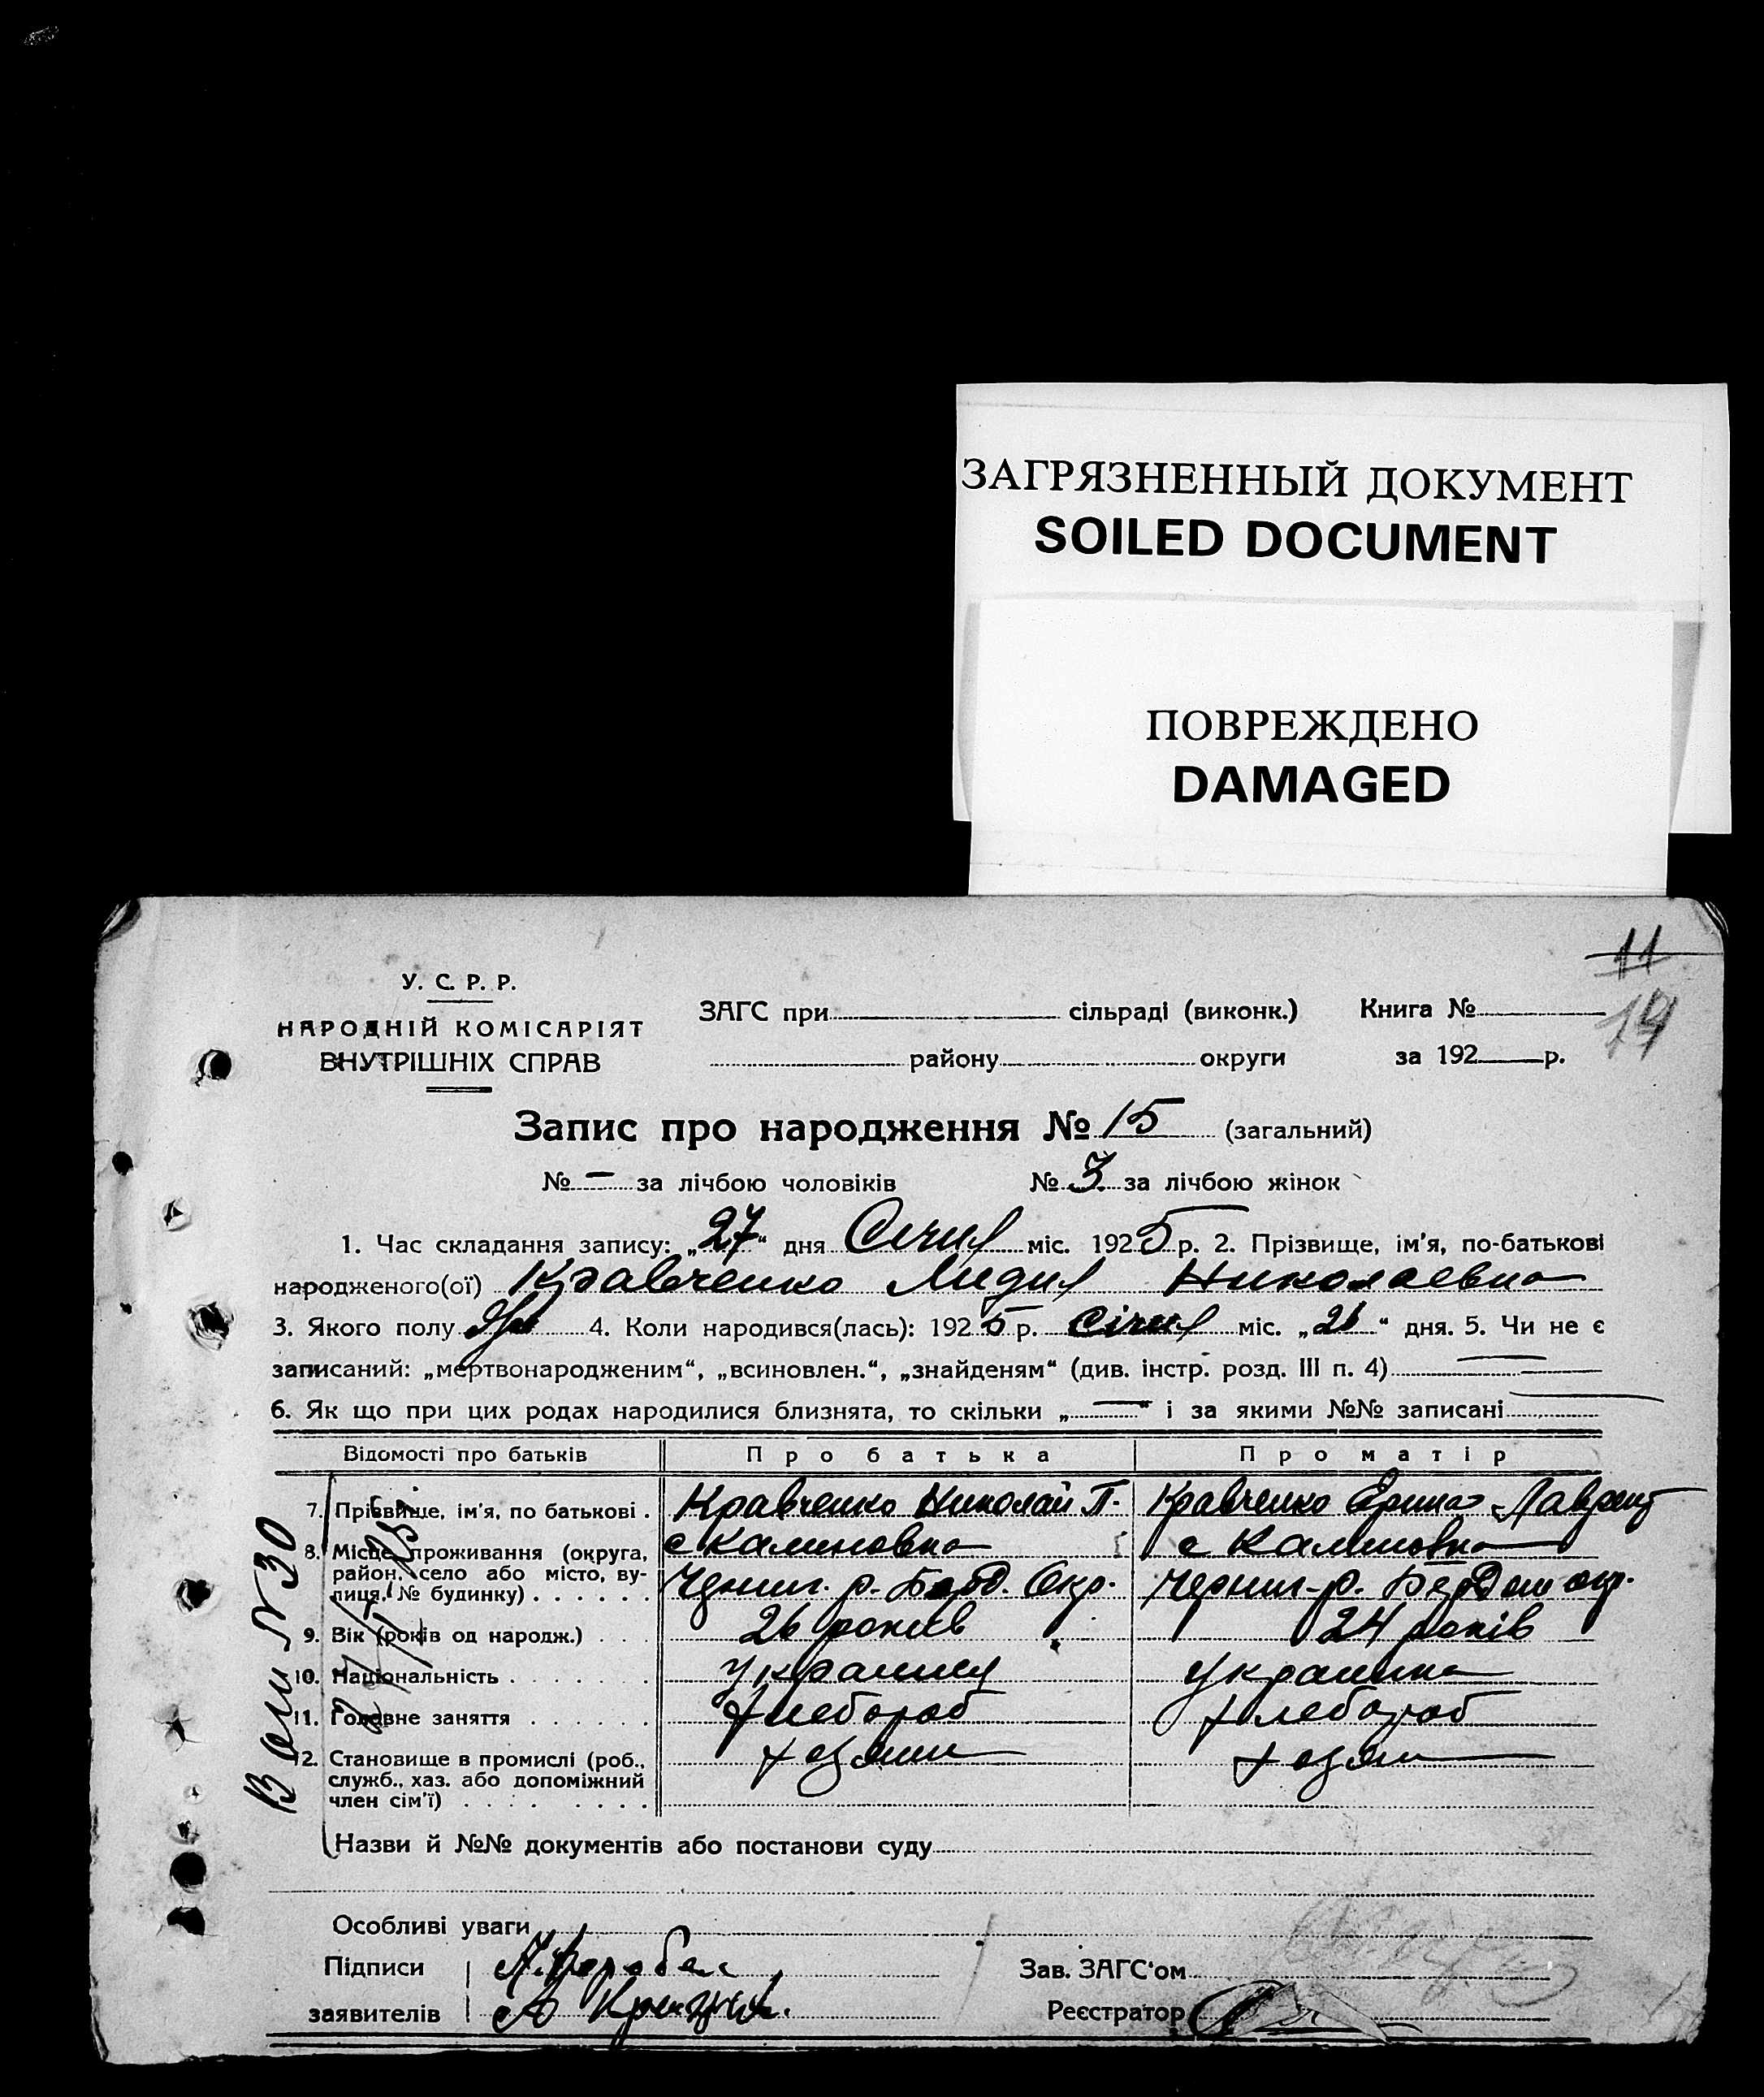 ЗАГРЯЗНЕННЫЙ ДОКУМЕНТ
SOILED DOCUMENT
ПОВРЕЖДЕНО
DAMAGED
11
14
У. С. Р. Р.
НАРОДНІЙ КОМІСАРІЯТ
ВНУТРІШНІХ СПРАВ
ЗАГС при сільраді (виконк.) Книга №
району округи за 192 р.
Запис про народження № 15 (загальний)
№ — за лічбою чоловіків № 3 за лічбою жінок
1. Час складання запису: „27“ дня Січня міс. 1925 р. 2. Прізвище, ім'я, по-батькові
народженого(ої) Кравченко Лидия Николаевна
3. Якого полу 4. Коли народився(лась): 1925 р. Січня міс. „21“ дня. 5. Чи не є
записаний: „мертвонародженим“, „всиновлен.“, „знайденям“ (див. інстр. розд. III п. 4) —
6. Як що при цих родах народилися близнята, то скільки „—“ і за якими №№ записані —
Відомості про батьків Про батька Про матір
7. Прізвище, ім'я, по батькові . Кравченко Николай П. Кравченко Ерина Лаврент
8. Місце проживання (округа, район, село або місто, вулиця, № будинку) . . . . . .
с Калиновка с Калиновка
Черниг. р. Берд. Окр. Черниг. р. Бердян окр.
9. Вік (років од народж.) . . . 26 років 24 років
10. Національність . . . . . . . Украинец Украинка
11. Головне заняття . . . . . . Хлебороб Хлебороб
12. Становище в промислі (роб., Хозяин Хозяи
служб., хаз. або допоміжний
член сім'ї) . . . . . . . .
Назви й №№ документів або постанови суду
Особливі уваги
Підписи
заявителів
Зав. ЗАГС'ом
Реєстратор
№ 30